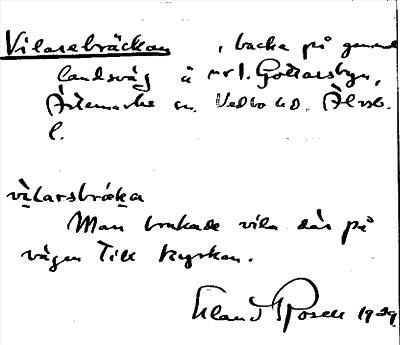 Vilarebräckan , backe på gammal
landsväg å nr 1. Gottarsbyn,
Ärtemarks sn. Vedbo hd. Älvsb.
l.
vìlarsbräka
Man brukade vila där på
vägen till kyrkan.
Erland Rosell 1939